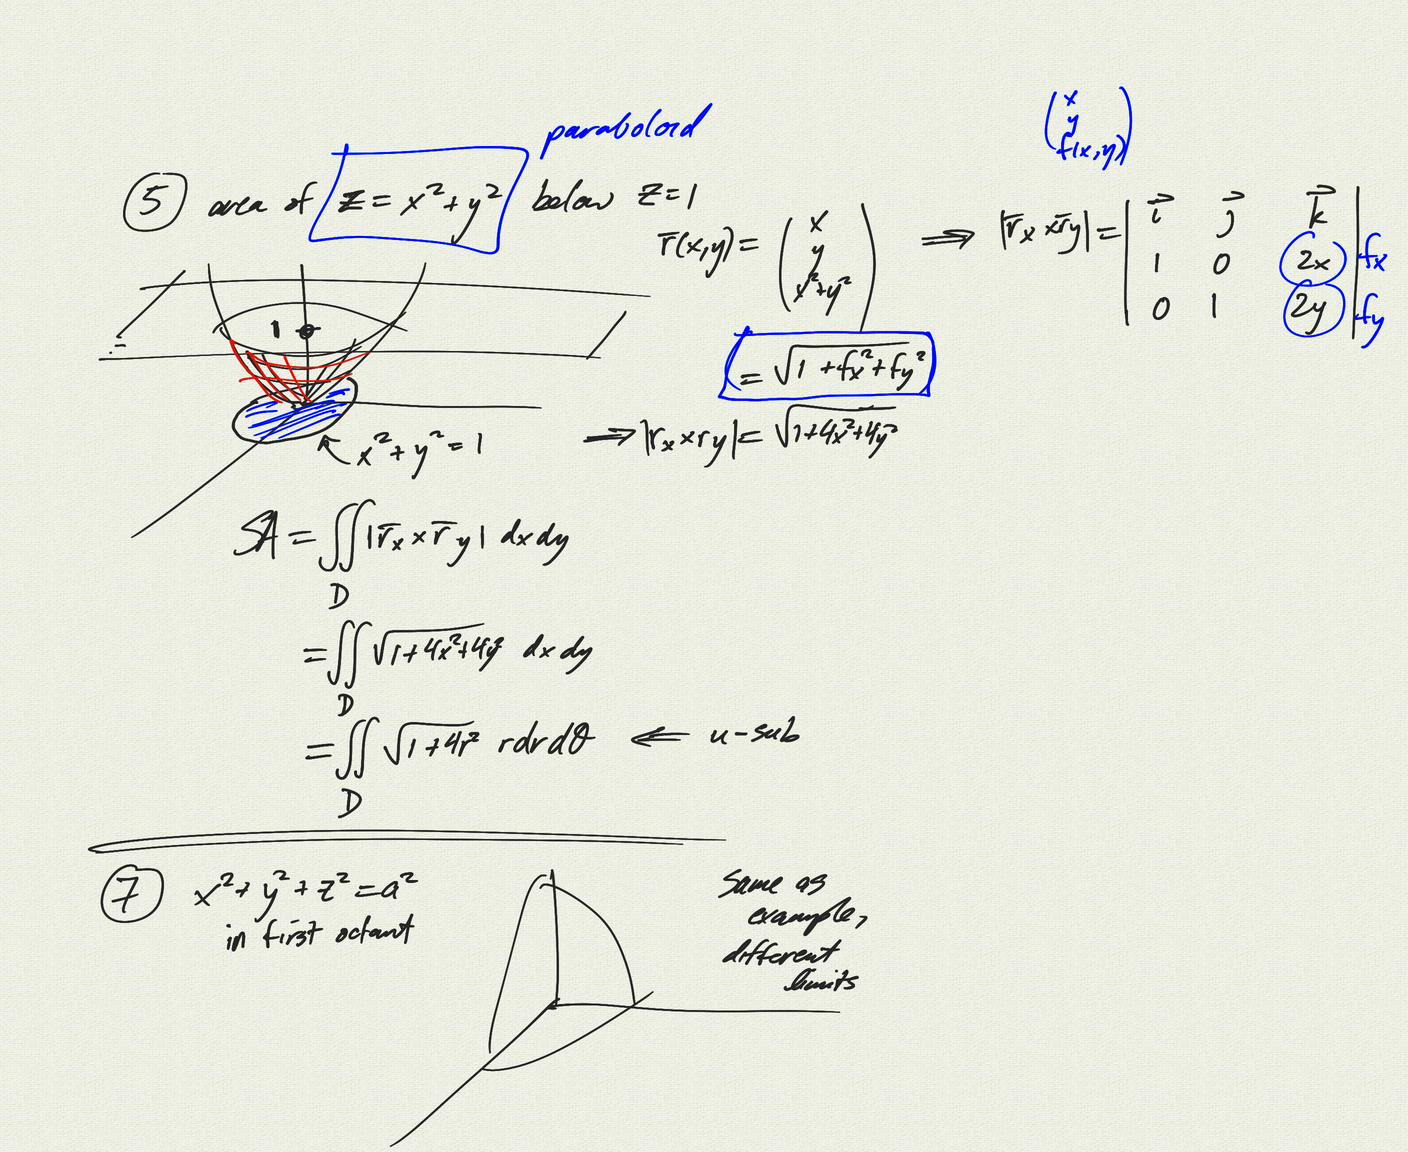 paraboloid
⑤ area of z = x² + y² below z = 1
r̄(x,y) = (x y x²+y²) ⟹ |r̄x × r̄y| = | i⃗ j⃗ k⃗ |
(x y f(x,y))
1 0 2x fx
0 1 2y fy
= √(1 + fx² + fy²)
1
x² + y² = 1
⟹ |rx × ry| = √(1+4x²+4y²)
SA = ∬ |r̄x × r̄y| dx dy
D
= ∬ √(1+4x²+4y²) dx dy
D
= ∬ √(1+4r²) r dr dθ ⟸ u-sub
D
⑦ x² + y² + z² = a²
in first octant
same as
example,
different
limits